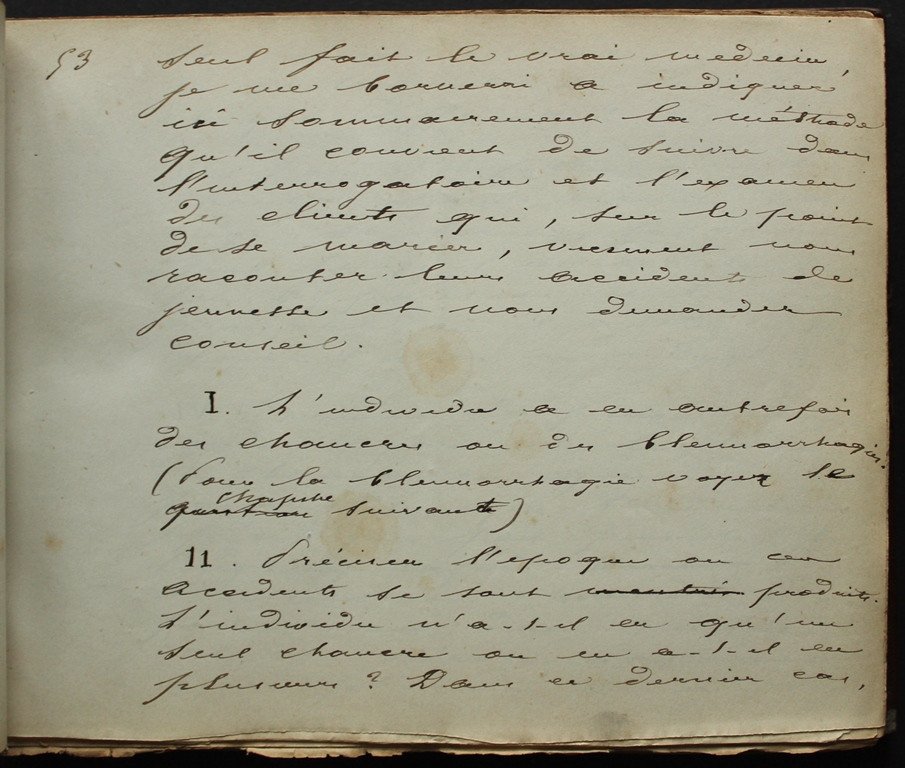 53
seul fait le vrai medecin,
je me bornerri a indiquer
ici sommairement la méthode
qu'il convient de suivre dans
l'interrogatoire et l'examen
des clients qui, sur le point
de se marier, viennent nous
raconter leurs accidents de
jeunesse et nous demander
conseil.
I. L'individu a eu autrefois
des chancres ou des blennorrhagies.
(Pour la blennorrhagie voyez le
chapitre
question suivante)
II. Préciser l'epoque ou ces
accidents se sont montrés produits.
L'individu n'a-t-il eu qu'un
seul chancre ou en a-t-il eu
plusieurs? Dans ce dernier cas,